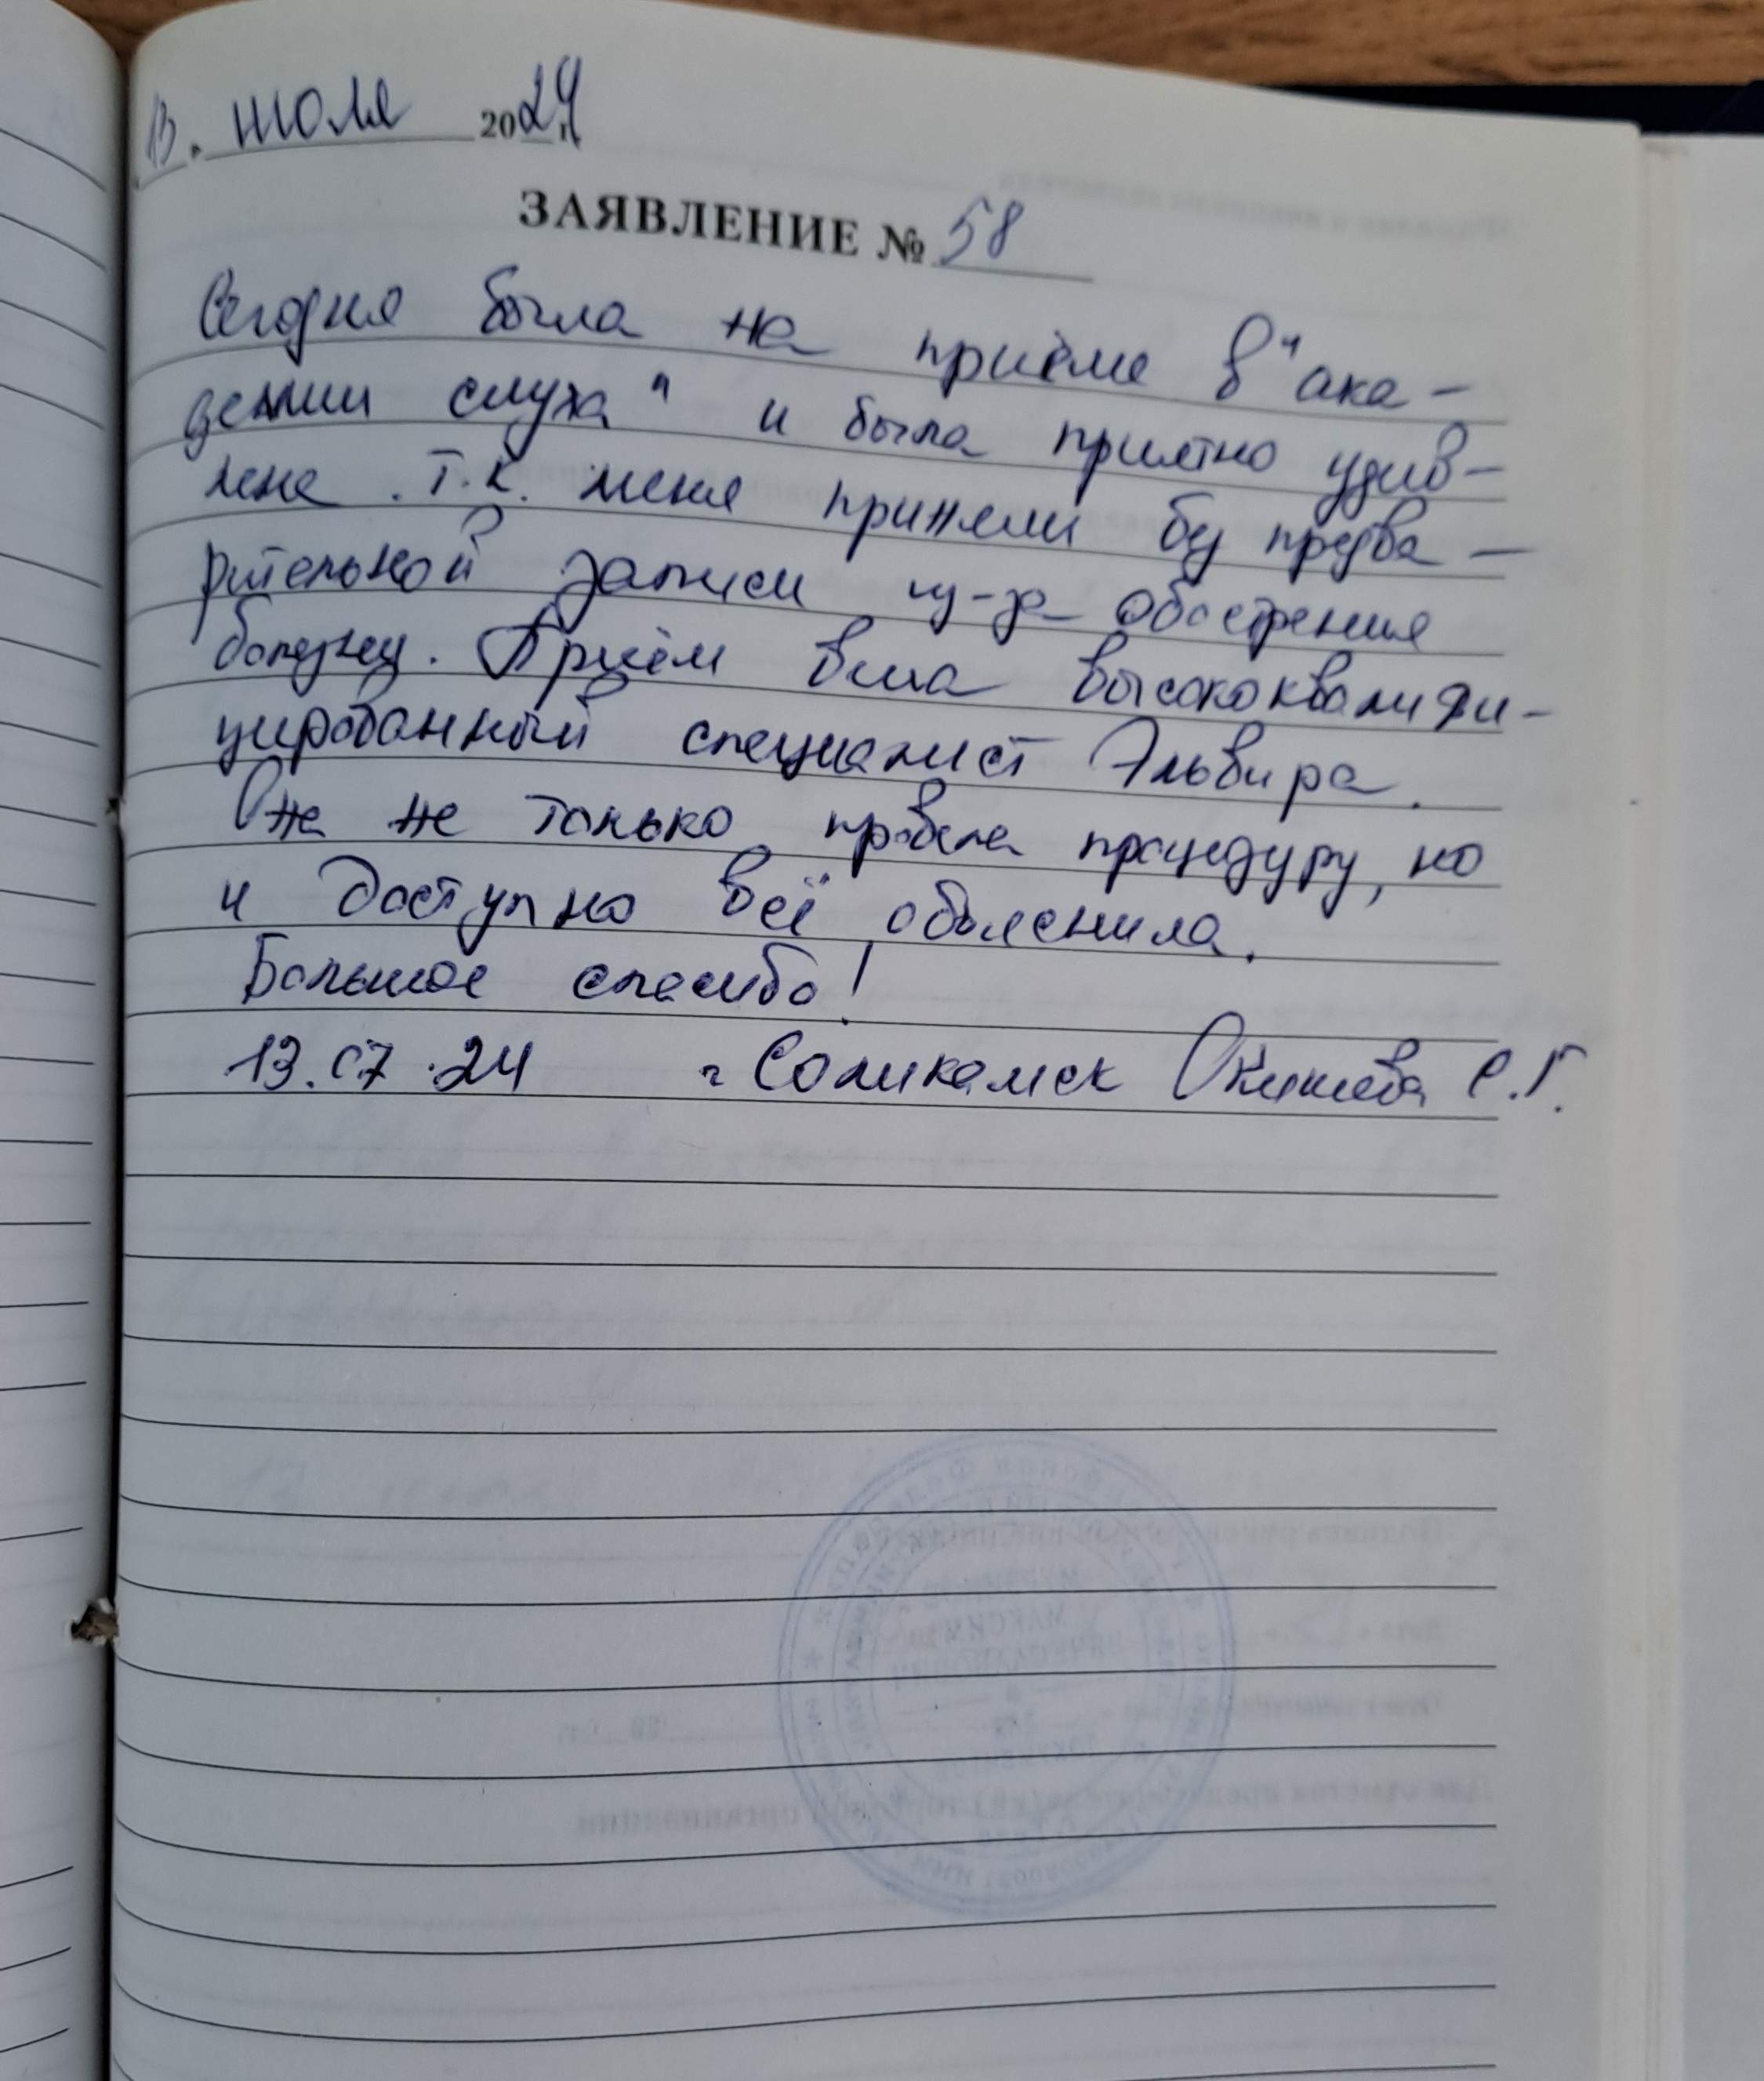 13. июля 2024
ЗАЯВЛЕНИЕ № 58
Сегодня была на приёме в "ака-
демии слуха" и была приятно удив-
лена. т.к. меня приняли без предва-
рительной записи из-за обострения
болезни. Приём вела высококвалифи-
цированный специалист Эльвира.
Она не только провела процедуру, но
и доступно всё объяснила.
Большое спасибо!
13.07.24 г Соликамск Окишева С.Г.